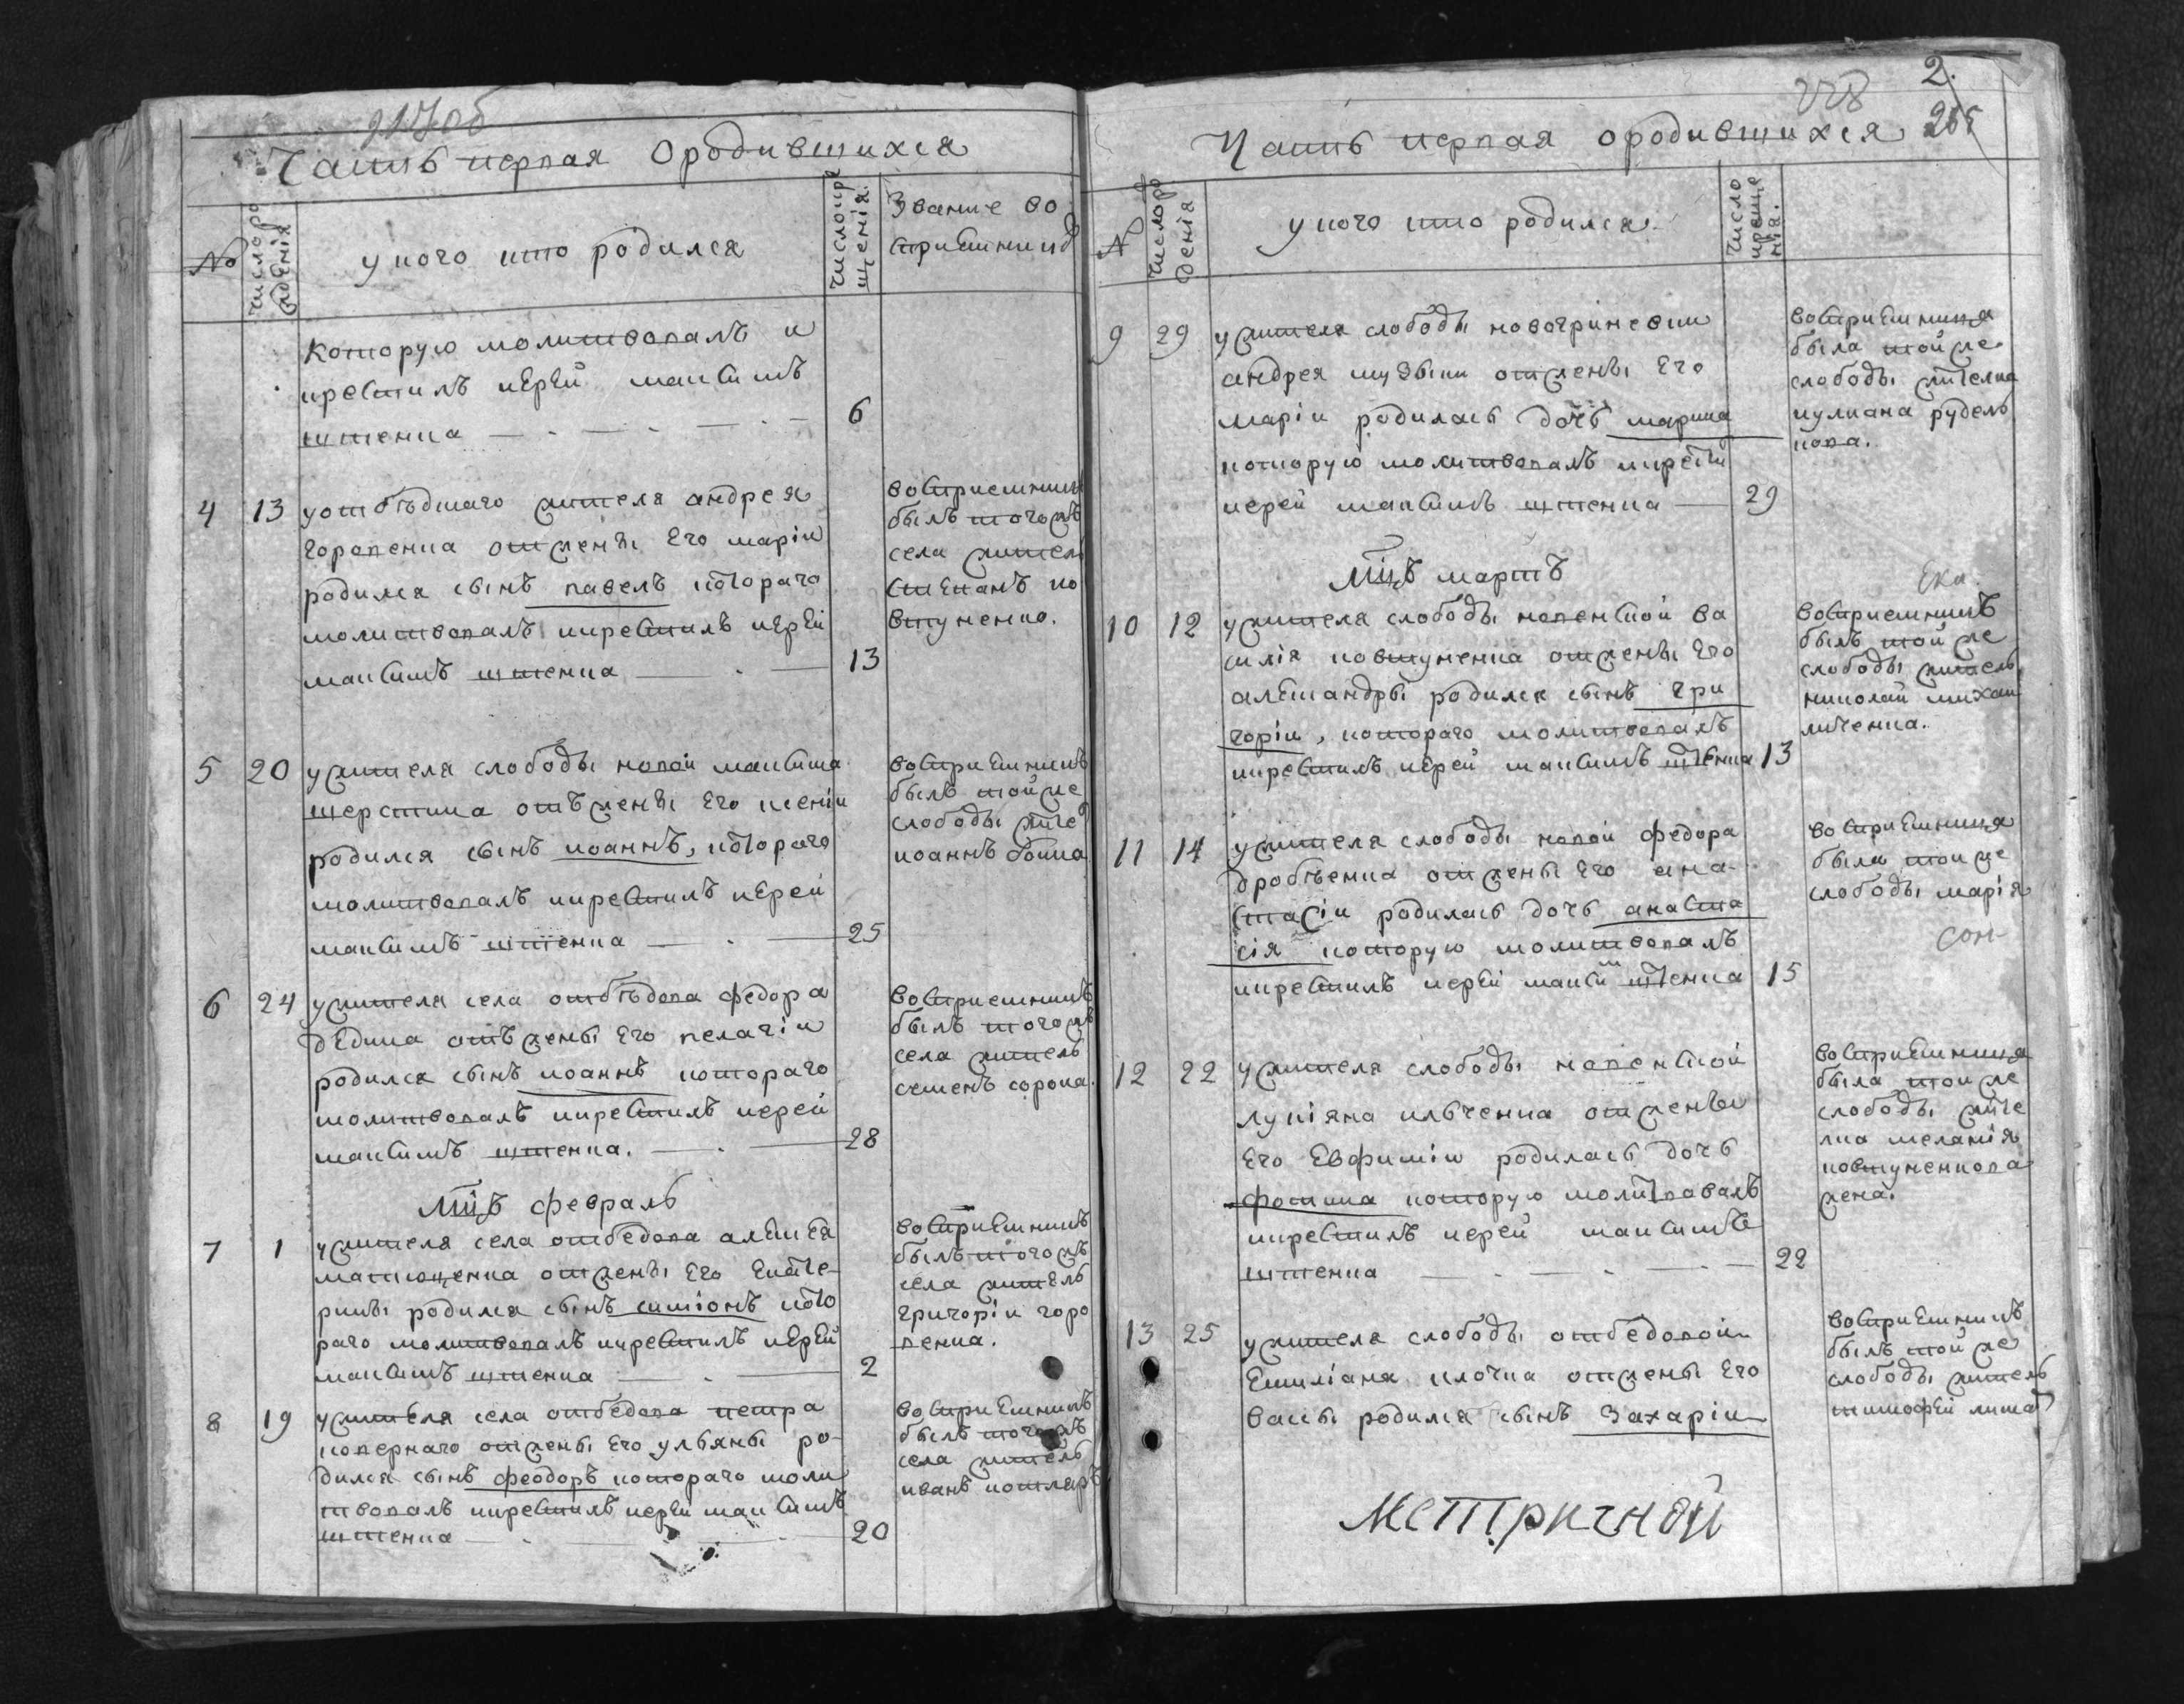 Часть первая Ородившихся
№
число ро
ждения
у кого кто родился
число кре
щенія
Звание во
спрiемников
Которую молитвовалъ и
крестилъ иерей максимъ
штенка 6
4 13 у отбѣдшаго жителя андрея
горовенка от жены Его марiи
родился сынъ павелъ которого
молитвовалъ и крестилъ иерей
максимъ штенка 13
восприемникъ
былъ того жъ
села житель
степанъ ко
втуненко.
5 20 у жителя слободы новой максима
шерстика отъ жены Его ксенiи
родился сынъ иоаннъ, которого
молитвовалъ и крестилъ иерей
максимъ штенка 25
восприемникъ
былъ той же
слободы жите
иоаннъ бойка
6 24 у жителя села отбѣдова федора
дедика отъ жены Его пелагiи
родился сынъ иоаннъ которого
молитвовалъ и крестилъ иерей
максимъ штенка. 28
восприемникъ
былъ того жъ
села житель
семенъ сорока.
Мцъ февраль
7 1 у жителя села отбедова алексея
матющенка от жены Его Екате
рины родился сынъ симiонъ кото
раго молитвовалъ и крестилъ иерей
максимъ штенка 2
восприемникъ
былъ того жъ
села житель
григорiи горо
венка.
8 19 у жителя села отбедова петра
ковернаго от жены Его ульяны ро
дился сынъ феодоръ которого моли
твовалъ и крестилъ иерей максимъ
штенка 20
восприемникъ
былъ того жъ
села житель
иванъ котляръ
228 2.
Часть первая ородившихся
N
число ро
жденiя
у кого кто родился
число
креще
нiя.
9 29 у жителя слободы новогриневки
андрея музыки от жены Его
марiи родилась дочь марина
которую молитвовалъ и крести
иерей максимъ штенка 29
восприемница
была той же
слободы жителка
иулиана рудень
кова.
Мцъ мартъ
10 12 у жителя слободы новенской ва
силiя ковтуненка от жены Его
александры родился сынъ гри
горiи, которого молитвовалъ
и крестилъ иерей максимъ штенка 13
Ека
восприемникъ
былъ той же
слободы житель
николай михаи
личенка.
11 14 у жителя слободы новой федора
дробѣенка от жены Его ана
стасiи родилась дочь анаста
сiя которую молитвовалъ
и крестилъ иерей максим штенка 15
восприемница
была той же
слободы марiя
12 22 у жителя слободы новенской
лукiяна ильченка от жены
Его Евфимiи родилась дочь
фотина которую молитвовалъ
и крестилъ иерей максимъ
штенка 22
восприемница
была той же
слободы жите
лка меланiя
ковтуненкова
жена.
13 25 у жителя слободы отбедовой
Емилiана клочка от жены Его
васы родился сынъ Захарiи
восприемникъ
былъ той же
слободы житель
тимофей
Метричной